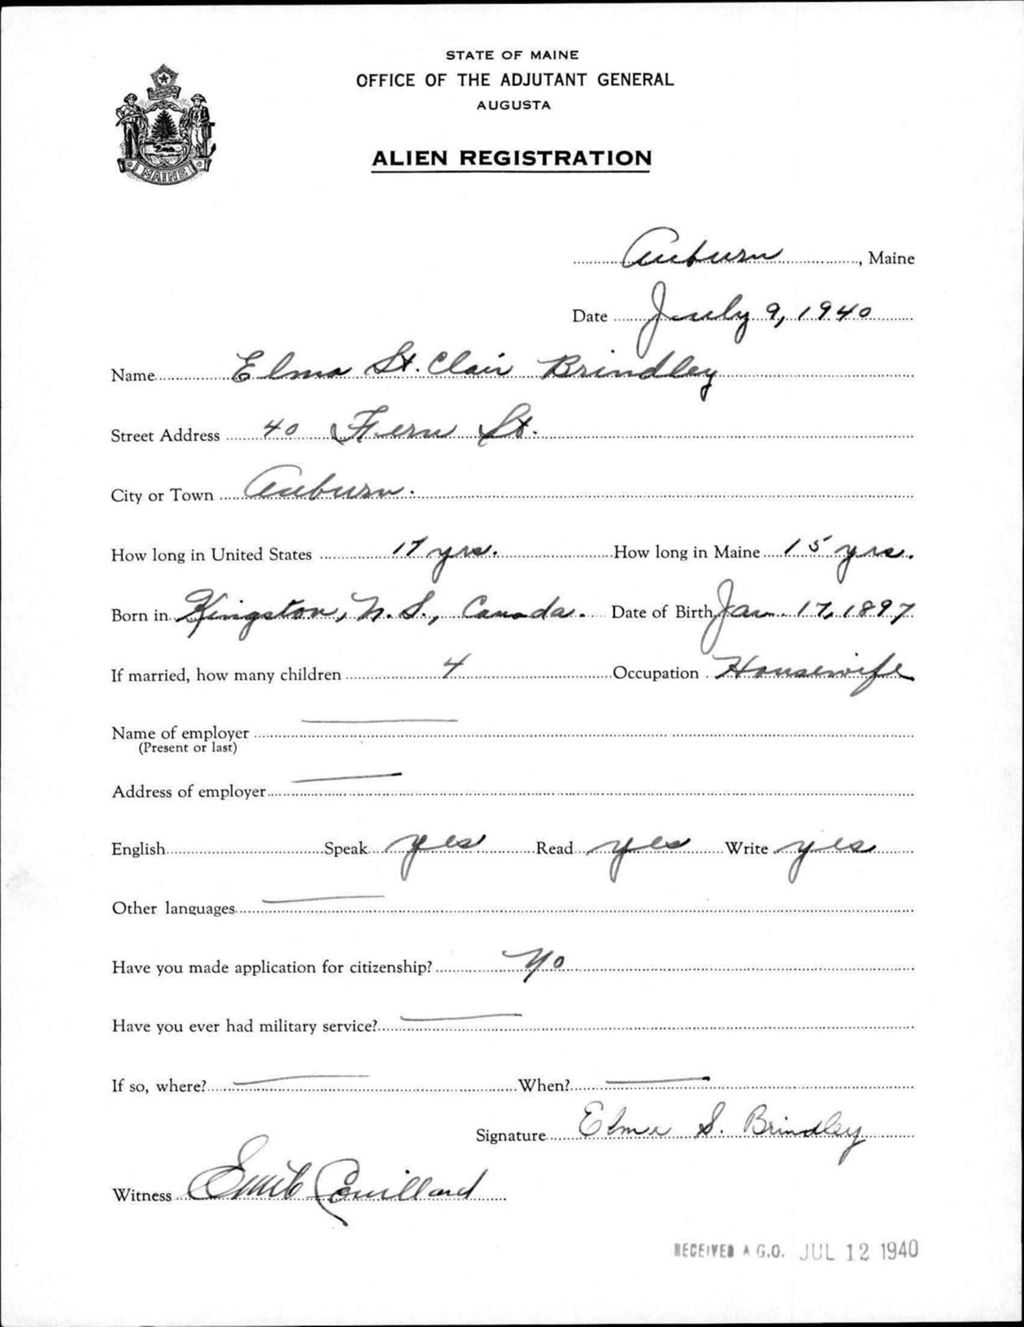 STATE OF MAINE
OFFICE OF THE ADJUTANT GENERAL
AUGUSTA
ALIEN REGISTRATION
MAINE
Auburn, Maine
Date July 9, 1940
Name Elma St. Clair Brindley
Street Address 40 Fern St.
City or Town Auburn.
How long in United States 17 yrs. How long in Maine 15 yrs.
Born in Kingston, N.S., Canada. Date of Birth Jan. 17, 1897
If married, how many children 4 Occupation Housewife
Name of employer
(Present or last)
Address of employer
English Speak yes Read yes Write yes
Other languages
Have you made application for citizenship? No
Have you ever had military service?
If so, where? When?
Signature Elma S. Brindley
Witness Emile Couillard
RECEIVED A.G.O. JUL 12 1940